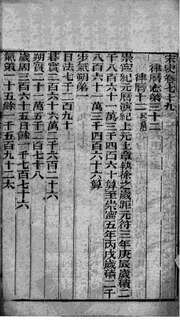 宋史卷七十九
律曆志第三十二
律曆十二
崇寧紀元曆演紀上元上章執徐之歲距元符三年庚辰歲積二
千八百六十一萬三千四百六十算至崇寧五年丙戌歲積二千
八百六十一萬三千四百六十六算
步氣朔第一
日法七千二百九十
朞實二百六十六萬二千六百二十六
朔實二十一萬五千二百七十八
歲周三百六十五日餘一千七百七十六
氣策一十五餘一千五百九十二太